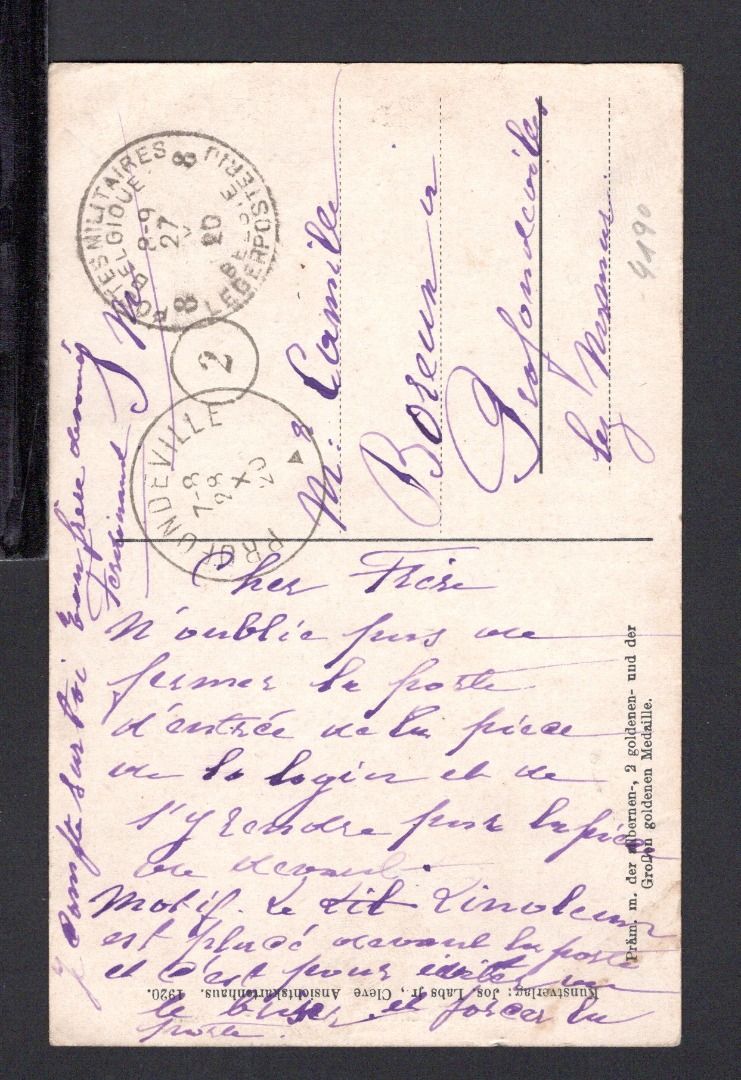 POSTES MILITAIRES
BELGIQUE
8
8-9
27
V
20
BELGIE
LEGERPOSTERIJ
8
2
PROFONDEVILLE
7-8
28
X
20
S M
Mr Camille
Boreux
Profondeville
lez Namur
4190
Cher Frère
N'oublie pas de
fermer la porte
d'entrée de la pièce
de la
et de
s'y rendre par la pièce
de devant.
Motif. Le Linoleum
est placé devant la porte
et c'est pour éviter de
le briser et forcer la
porte.
Je compte sur toi Ton frère
Ferdinand
Präm. m. der silbernen-, 2 goldenen- und der
Großen goldenen Medaille.
Kunstverlag: Jos. Labs jr, Cleve Ansichtskartenhaus. 1920.